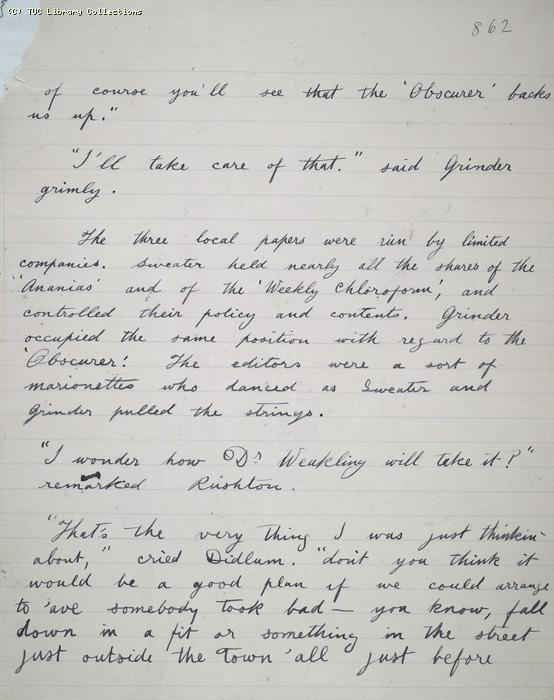 (C) TUC Library Collections
862
of course you'll see that the 'Obscurer' backs
us up."
"I'll take care of that." said Grinder
grimly.
The three local papers were run by limited
companies. Sweater held nearly all the shares of the
'Ananias' and of the 'Weekly Chloroform', and
controlled their policy and contents. Grinder
occupied the same position with regard to the
'Obscurer'. The editors were a sort of
marionettes who danced as Sweater and
Grinder pulled the strings.
"I wonder how Dr Weakling will take it?"
remarked Rushton.
"That's the very thing I was just thinkin'
about," cried Didlum. "don't you think it
would be a good plan if we could arrange
to 'ave somebody took bad — you know, fall
down in a fit or something in the street
just outside the Town 'all just before